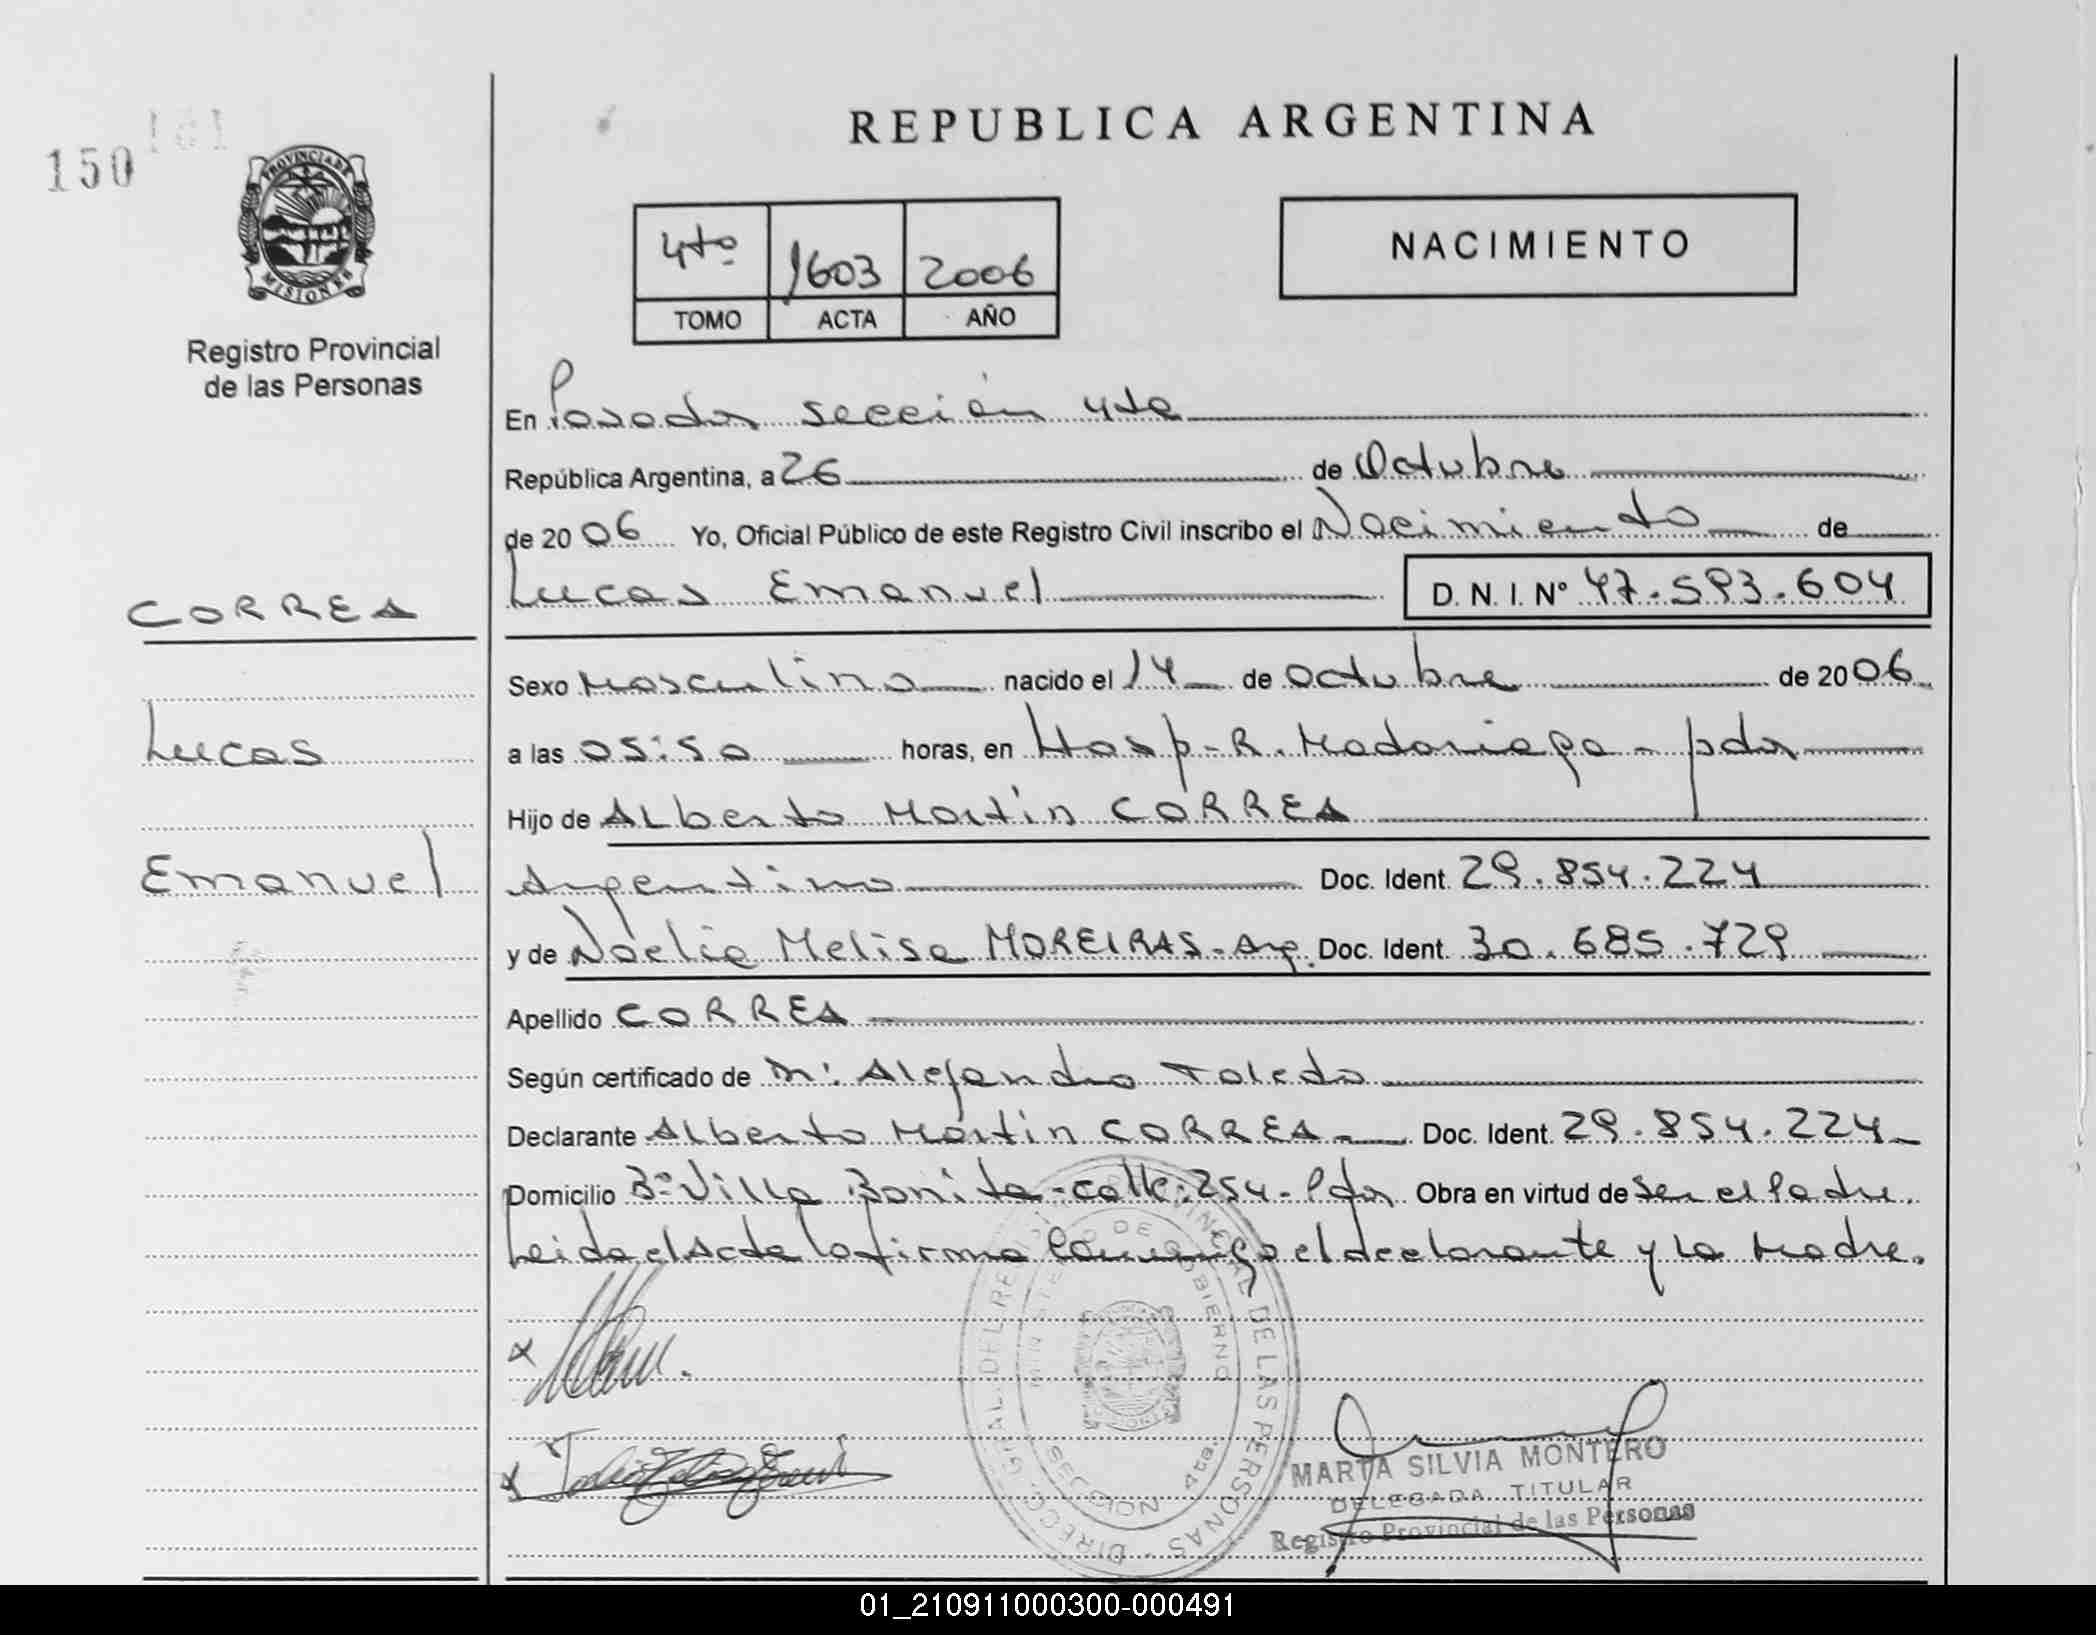 REPUBLICA ARGENTINA
150
PROVINCIA DE
MISIONES
Registro Provincial
de las Personas
4to 1603 2006
TOMO ACTA AÑO
NACIMIENTO
En Posadas sección 4ta
República Argentina, a 26 de Octubre
de 2006 Yo, Oficial Público de este Registro Civil inscribo el Nacimiento de
Lucas Emanuel D. N. I. Nº 47.593.604
CORREA
Lucas
Emanuel
Sexo Masculino nacido el 14 de Octubre de 2006
a las 05:50 horas, en Hosp-R. Madariaga - pdas
Hijo de Alberto Martín CORREA
Argentino Doc. Ident. 29.854.224
y de Noelia Melisa MOREIRAS - Arg. Doc. Ident. 30.685.729
Apellido CORREA
Según certificado de Alejandro Toledo
Declarante Alberto Martín CORREA Doc. Ident. 29.854.224
Domicilio Bº Villa Bonita - calle: 254 - Pdas Obra en virtud de ser el Padre.
Leida el Acta la firma conmigo el declarante y la Madre.
DIRECC. GRAL. DEL REG. PROVINCIAL DE LAS PERSONAS
MINISTERIO DE GOBIERNO
SECCION 4ta.
MARTA SILVIA MONTERO
DELEGADA TITULAR
Registro Provincial de las Personas
01_210911000300-000491